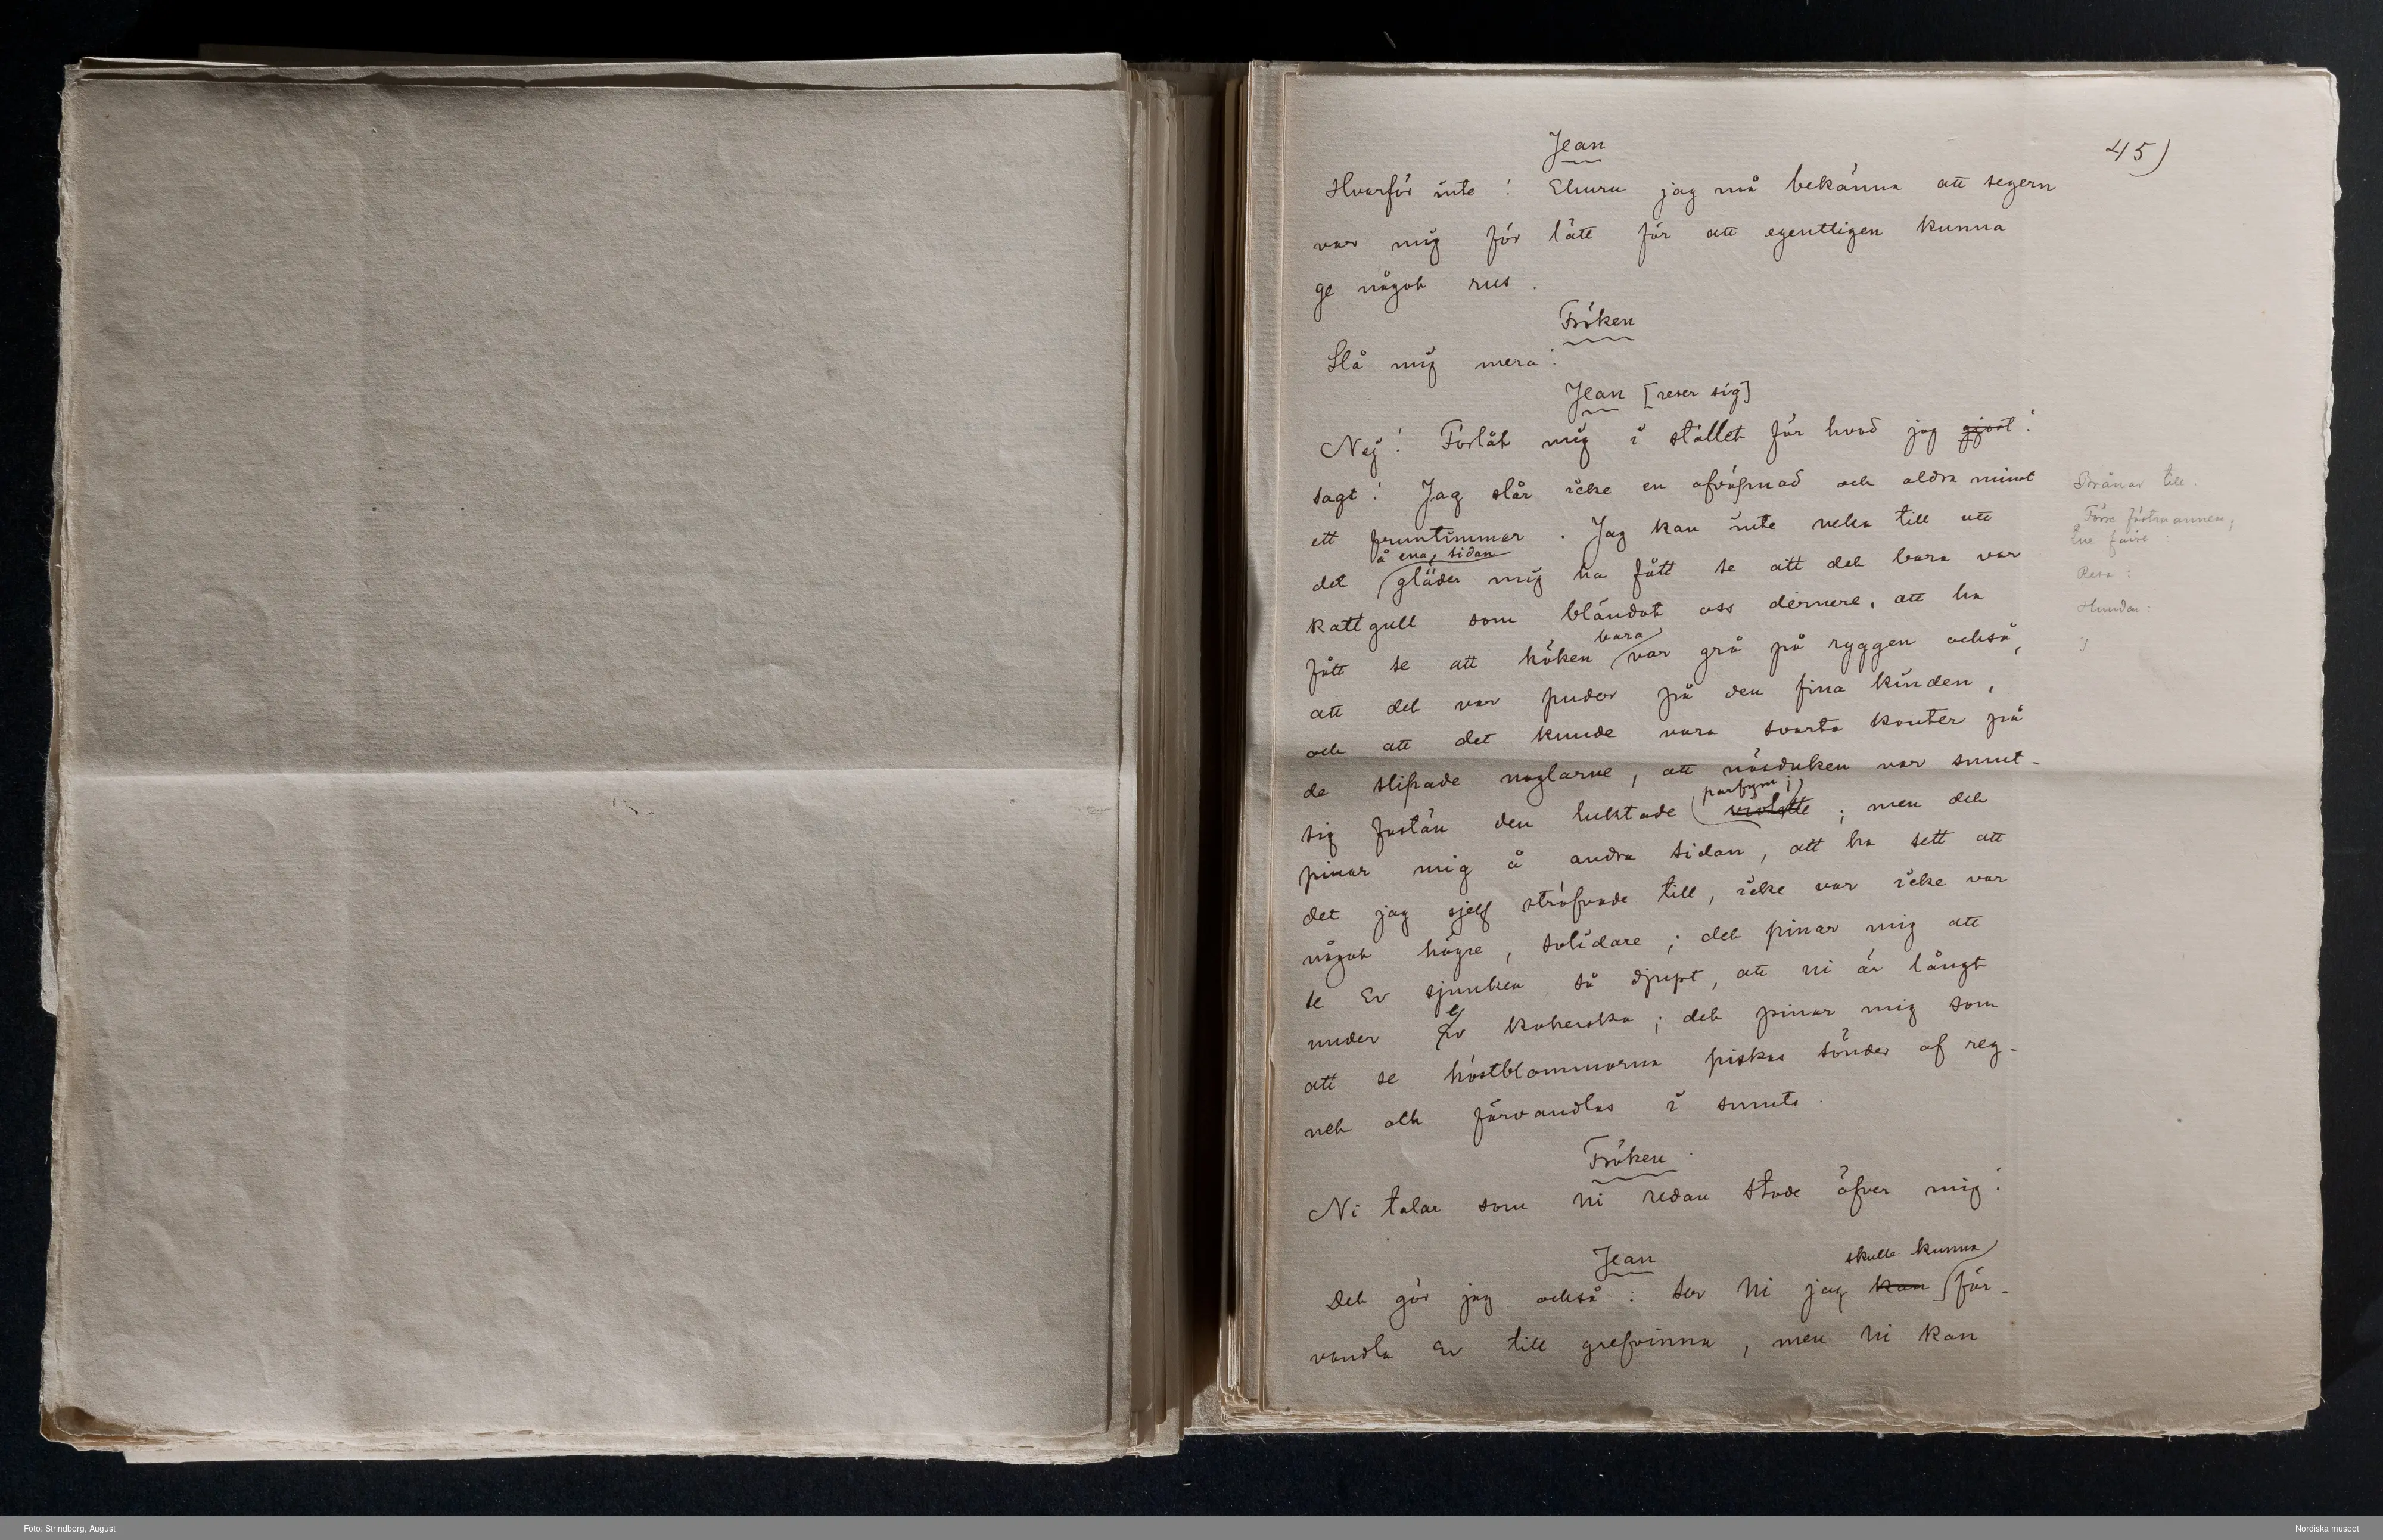 45)
Jean
Hvarför inte! Ehuru jag må bekänna att segern
var mig för lätt för att egentligen kunna
ge något rus.
Fröken
Slå mig mera!
Jean [reser sig]
Nej! Förlåt mig i stället för hvad jag gjort!
sagt! Jag slår icke en afväpnad och aldra minst
ett fruntimmer. Jag kan inte neka till att
å ena sidan
det gläder mig ha fått se att det bara var
kattgull som bländat oss dernere, att ha
bara
fått se att höken var grå på ryggen också,
att det var puder på den fina kinden,
och att det kunde vara svarta kanter på
de slipade naglarne, att näsduken var smut-
parfym;
sig fastän den luktade violette; men det
pinar mig å andra sidan, att ha sett att
det jag sjelf sträfvade till, icke var icke var
något högre, solidare; det pinar mig att
se Er sjunken så djupt, att ni är långt
under Er kokerska; det pinar mig som
att se höstblommorna piskas sönder af reg-
net och förvandlas i smuts.
Fröken
Ni talar som ni redan stode öfver mig!
Jean
skulle kunna
Det gör jag också: ser Ni jag kan för-
vandla Er till grefvinna, men Ni kan
till.
Resa:
Hunden:
Foto: Strindberg, August
Nordiska museet